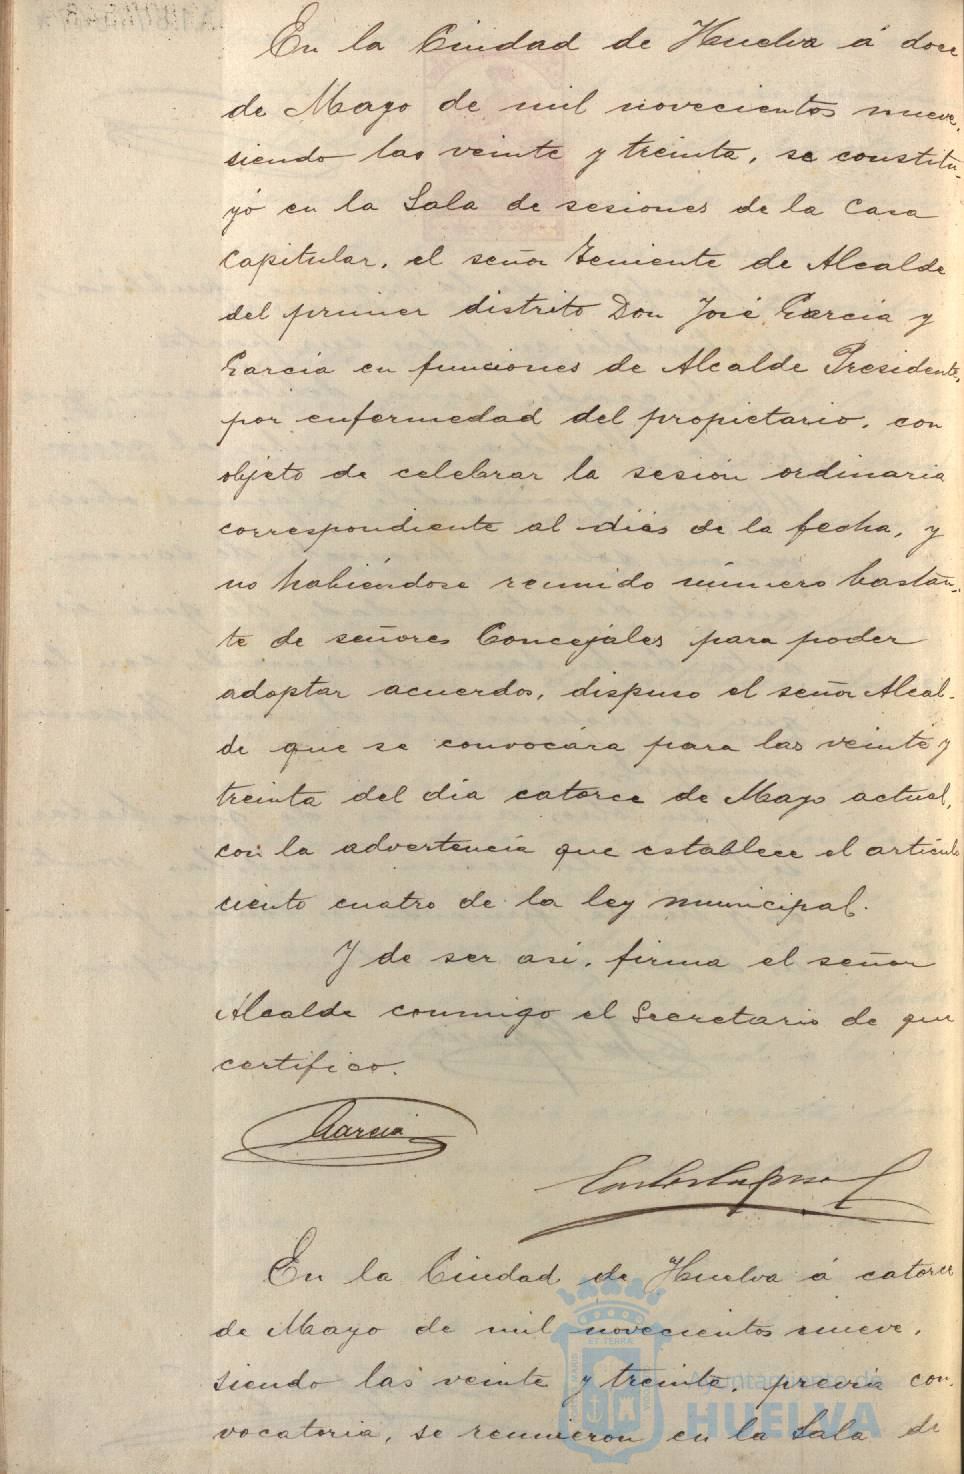 En la Ciudad de Huelva á doce
de Mayo de mil novecientos nueve,
siendo las veinte y treinta, se constitu-
yó en la Sala de sesiones de la Casa
Capitular, el señor Teniente de Alcalde
del primer distrito Don José García y
García en funciones de Alcalde Presidente,
por enfermedad del propietario, con
objeto de celebrar la sesión ordinaria
correspondiente al dias de la fecha, y
no habiéndose reunido número bastan-
te de señores Concejales para poder
adoptar acuerdos, dispuso el señor Alcal-
de que se convocára para las veinte y
treinta del dia catorce de Mayo actual,
con la advertencia que establece el artículo
ciento cuatro de la ley municipal.
Y de ser asi, firma el señor
Alcalde conmigo el Secretario de que
certifico.
Garcia
En la Ciudad de Huelva á catorce
de Mayo de mil novecientos nueve,
siendo las veinte y treinta, previa con-
vocatoria, se reunieron en la Sala de
Ayuntamiento de
HUELVA